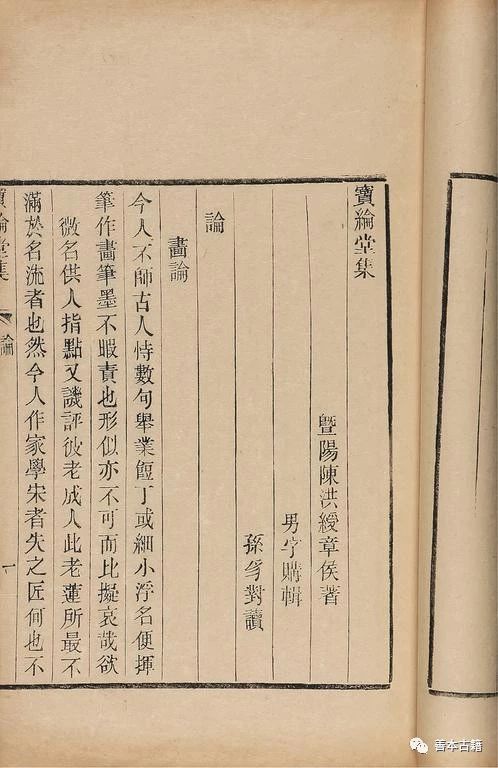 寶綸堂集
暨陽陳洪綬章侯著
男字購輯
孫豸對讀
論
畫論
今人不師古人恃數句舉業餖丁或細小浮名便揮
筆作畫筆墨不暇責也形似亦不可而比擬哀哉欲
微名供人指點又譏評彼老成人此老蓮所最不
滿於名流者也然今人作家學宋者失之匠何也不
寶綸堂集
論
一
善本古籍